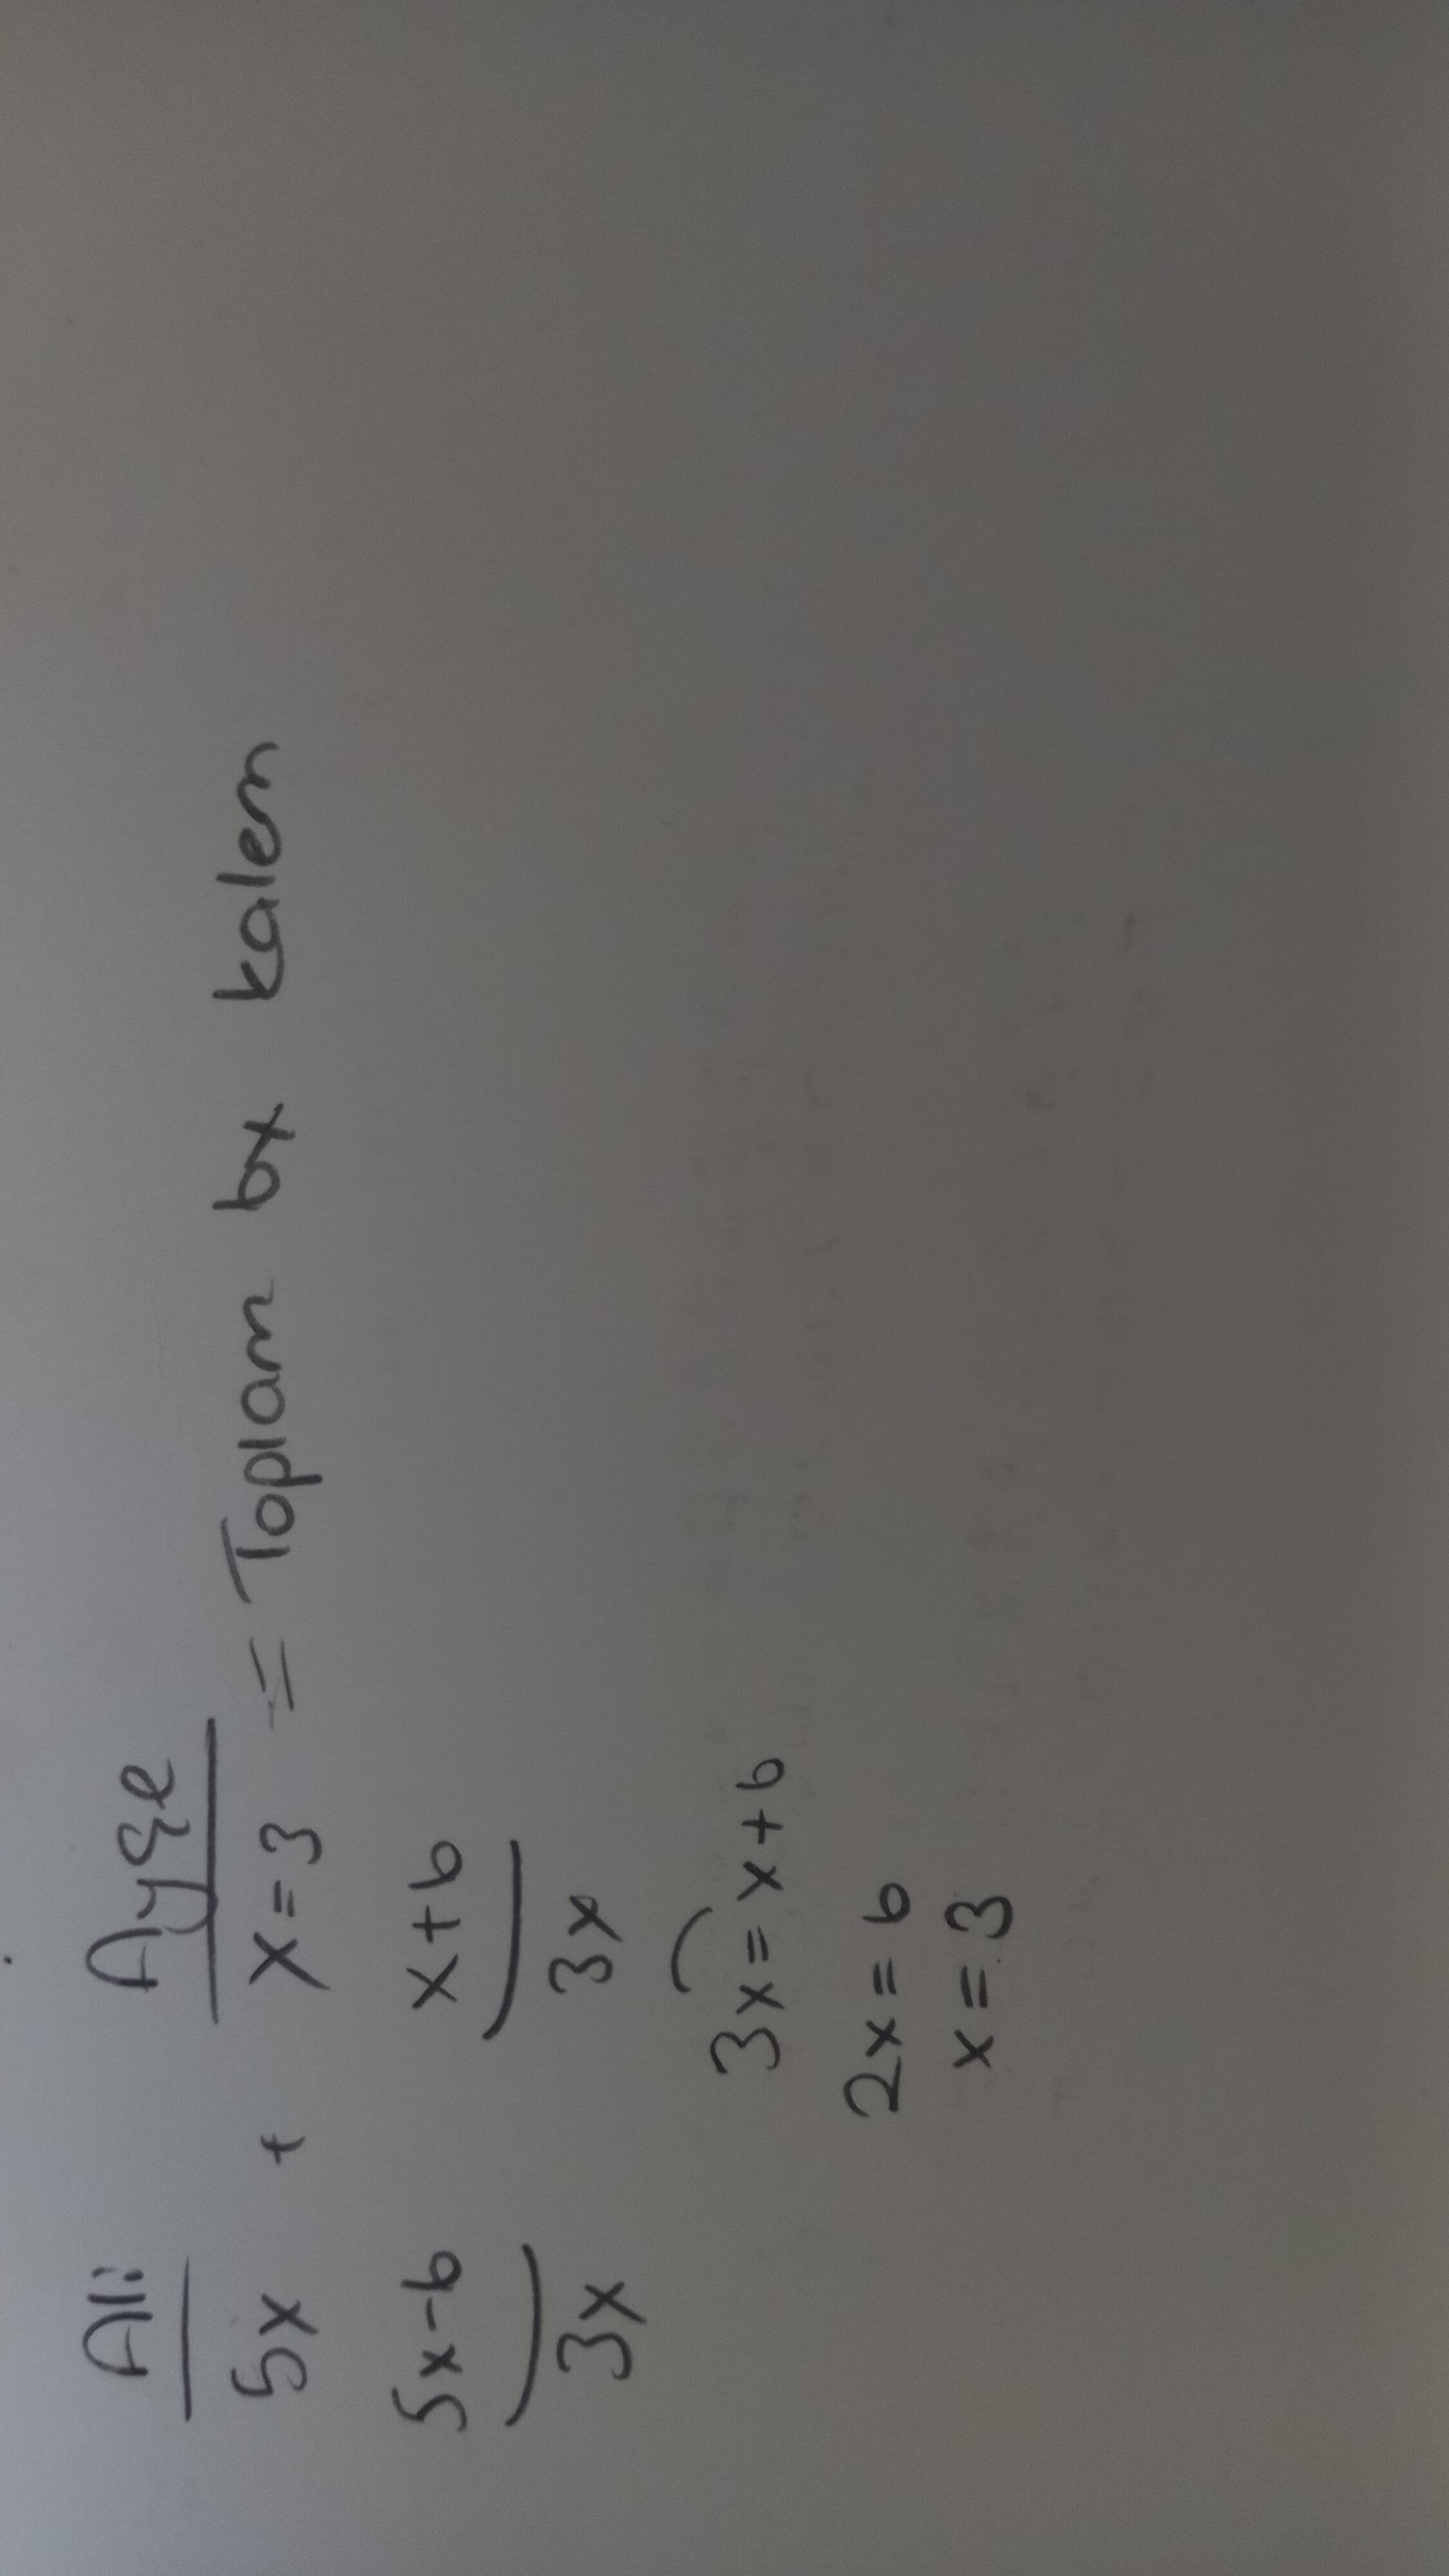 Ali Ayşe
5x + x=3 = Toplam 6x kalem
5x-6 x+6
3x 3x
3x=x+6
2x=6
x=3